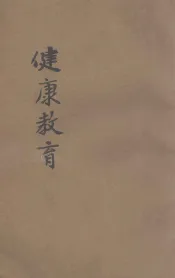 健康教育